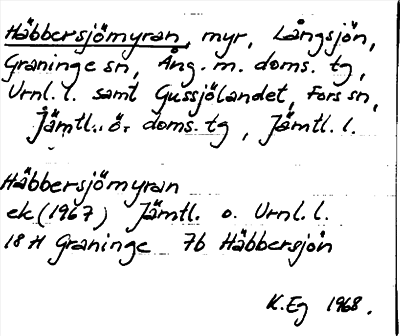 Häbbersjömyran, myr, Långsjön,
Graninge sn, Ång. m. doms. tg,
Urnl. l. samt Gussjölandet, Fors sn,
Jämtl. ö. doms. tg, Jämtl. l.
Häbbersjömyran
ek (1967) Jämtl. o. Urnl. l.
18 H Graninge 7b Häbbersjön
K. Eg 1968.